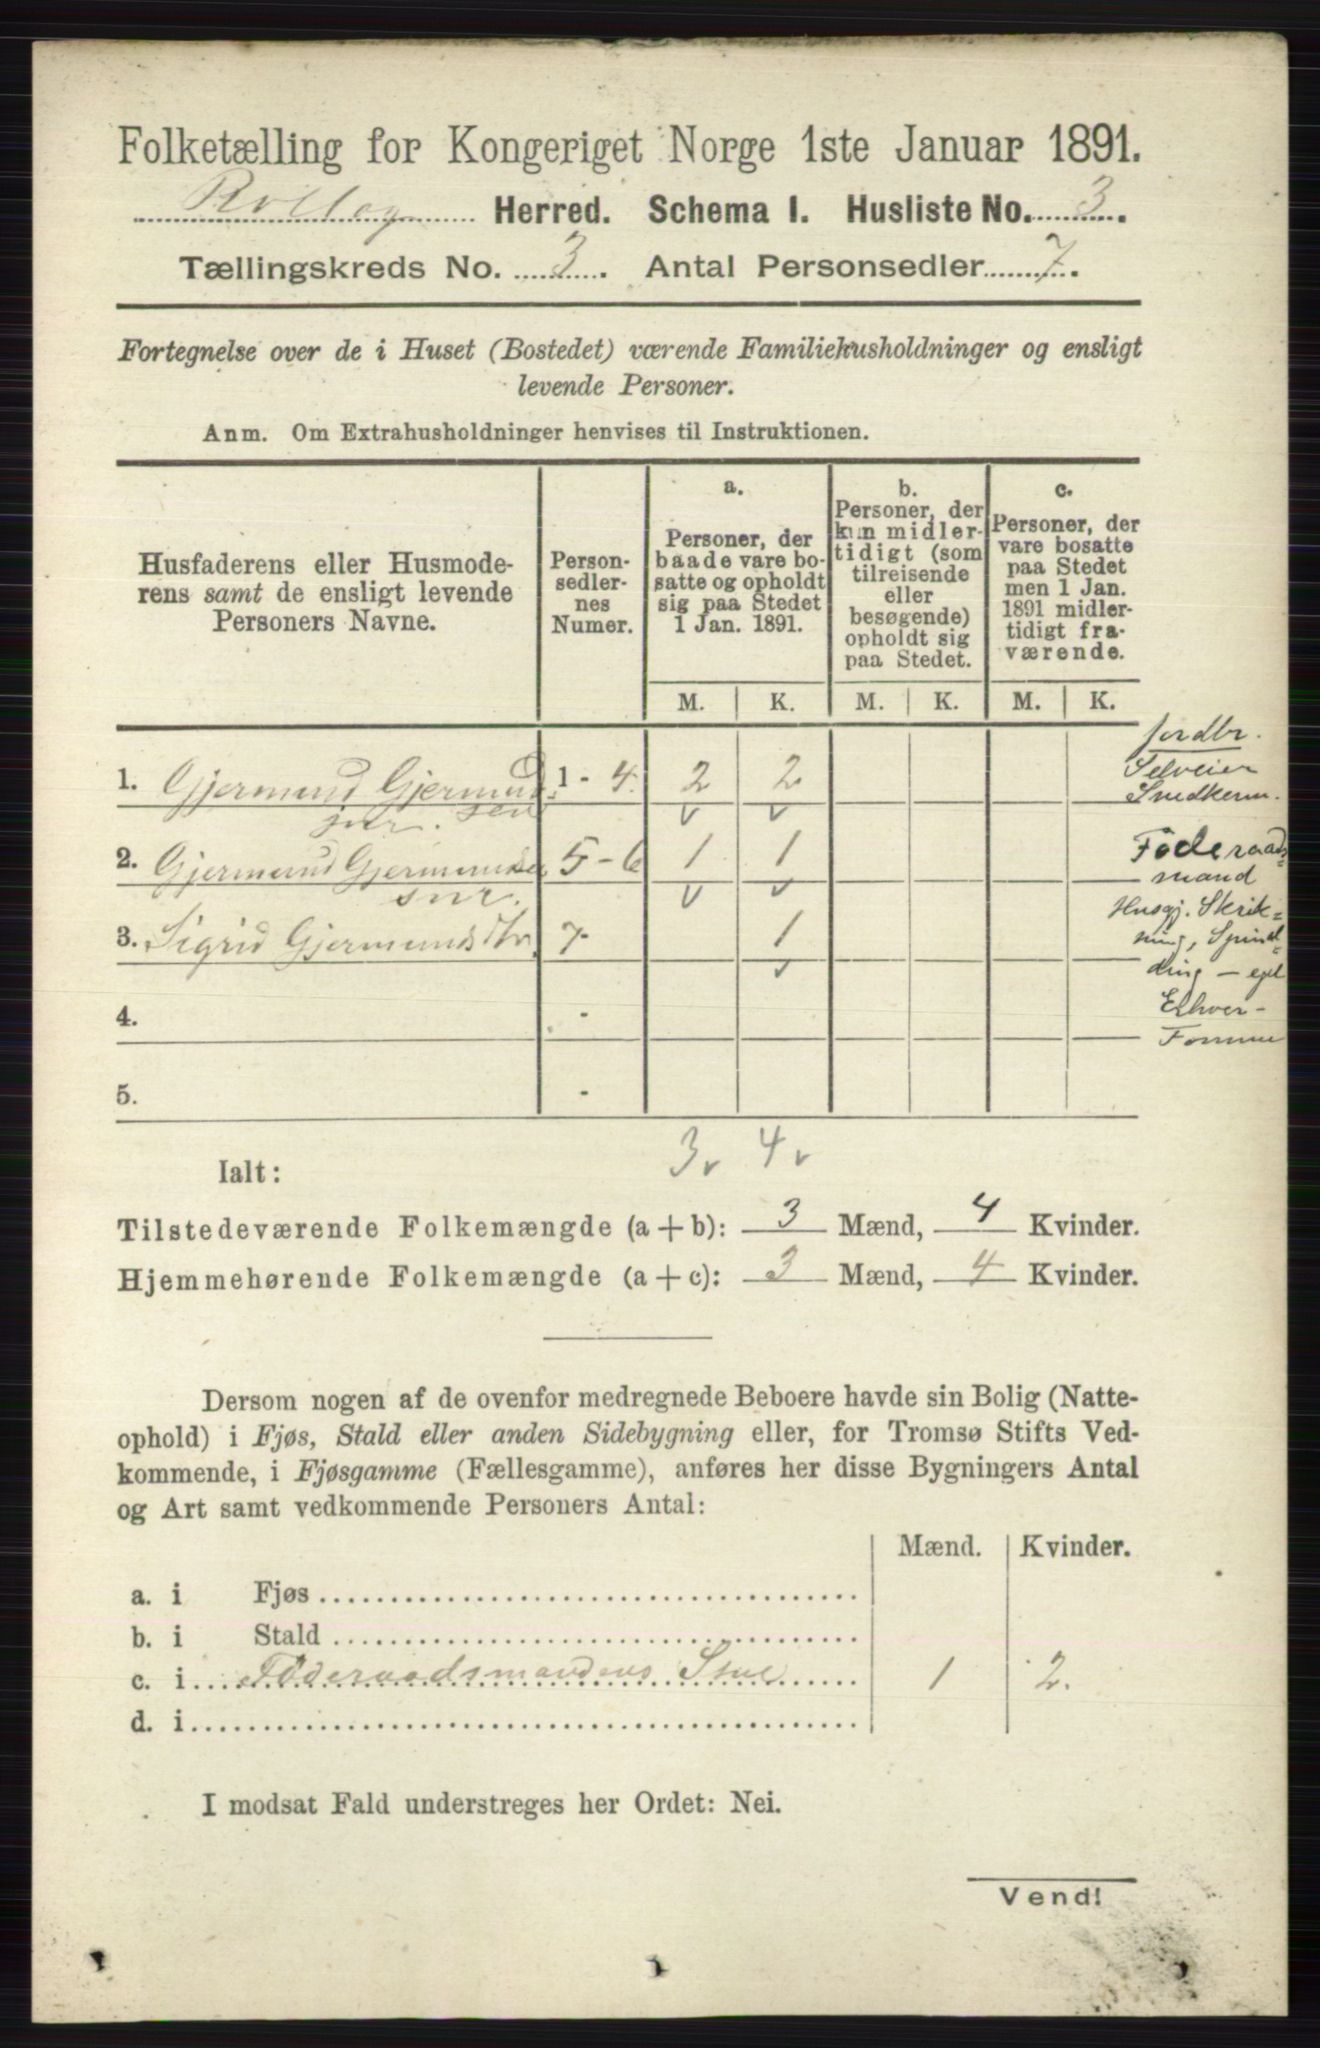 Folketælling for Kongeriget Norge 1ste Januar 1891.
Rollag Herred. Schema I. Husliste No. 3.
Tællingskreds No. 3. Antal Personsedler 7.
Fortegnelse over de i Huset (Bostedet) værende Familiehusholdninger og ensligt
levende Personer.
Anm. Om Extrahusholdninger henvises til Instruktionen.
Husfaderens eller Husmode-
rens samt de ensligt levende
Personers Navne.
Person-
sedler-
nes
Numer.
a.
Personer, der
baade vare bo-
satte og opholdt
sig paa Stedet
1 Jan. 1891.
b.
Personer, der
kun midler-
tidigt (som
tilreisende
eller
besøgende)
opholdt sig
paa Stedet.
c.
Personer, der
vare bosatte
paa Stedet
men 1 Jan.
1891 midler-
tidigt fra-
værende.
M. K. M. K. M. K.
1. Gjermund Gjermund 1 - 4. 2 2
sen
jnr.
jordbr.
Selveier
Snedkerm.
2. Gjermund Gjermundsen 5 - 6 1 1
snr.
Föderaads
mand
3. Sigrid Gjermundsdtr. 7- 1
Husgj. Strik=
ning, Spind=
ding - eget
Erhver-
4. -
5. -
3 v 4 v
Ialt:
Tilstedeværende Folkemængde (a + b): 3 Mænd, 4 Kvinder.
Hjemmehørende Folkemængde (a + c): 3 Mænd, 4 Kvinder.
Dersom nogen af de ovenfor medregnede Beboere havde sin Bolig (Natte-
ophold) i Fjøs, Stald eller anden Sidebygning eller, for Tromsø Stifts Ved-
kommende, i Fjøsgamme (Fællesgamme), anføres her disse Bygningers Antal
og Art samt vedkommende Personers Antal:
Mænd. Kvinder.
a. i Fjøs
b. i Stald
c. i Föderaadsmandens Stue 1 2.
d. i
I modsat Fald understreges her Ordet: Nei.
Vend!